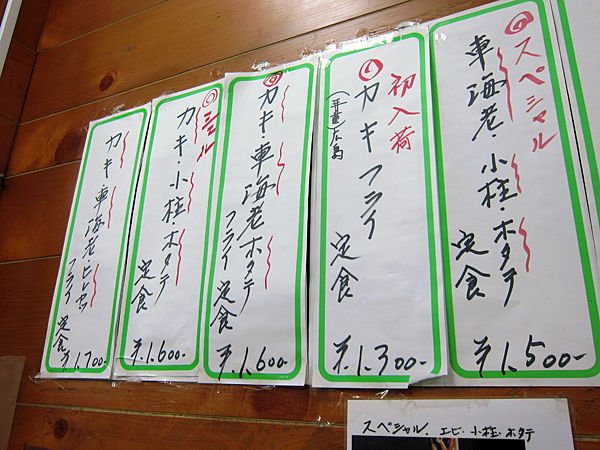 スペシャル
車海老・小柱・ホタテ
定食
¥1,500-
初入荷
カキフライ
広島
定食
¥1,300-
カキ・車海老ホタテ
フライ定食
¥1,600-
カキ・小柱・ホタテ
定食
¥1,600-
カキ・車海老・ヒレカツ
フライ定食
1,700-
スペシャル、エビ・小柱・ホタテ